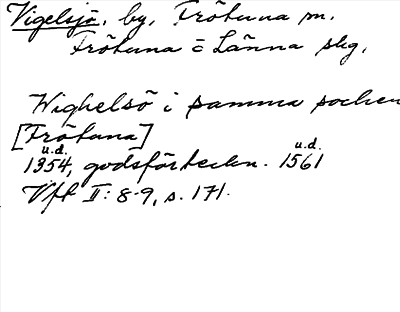 Vigelsjö, by, Frötuna sn.
Frötuna o Länna skg.
Wighelsö i samma socken
[Frötuna]
u.d. u.d.
1354, godsförteckn. 1561
Vft II: 8-9, s. 171.